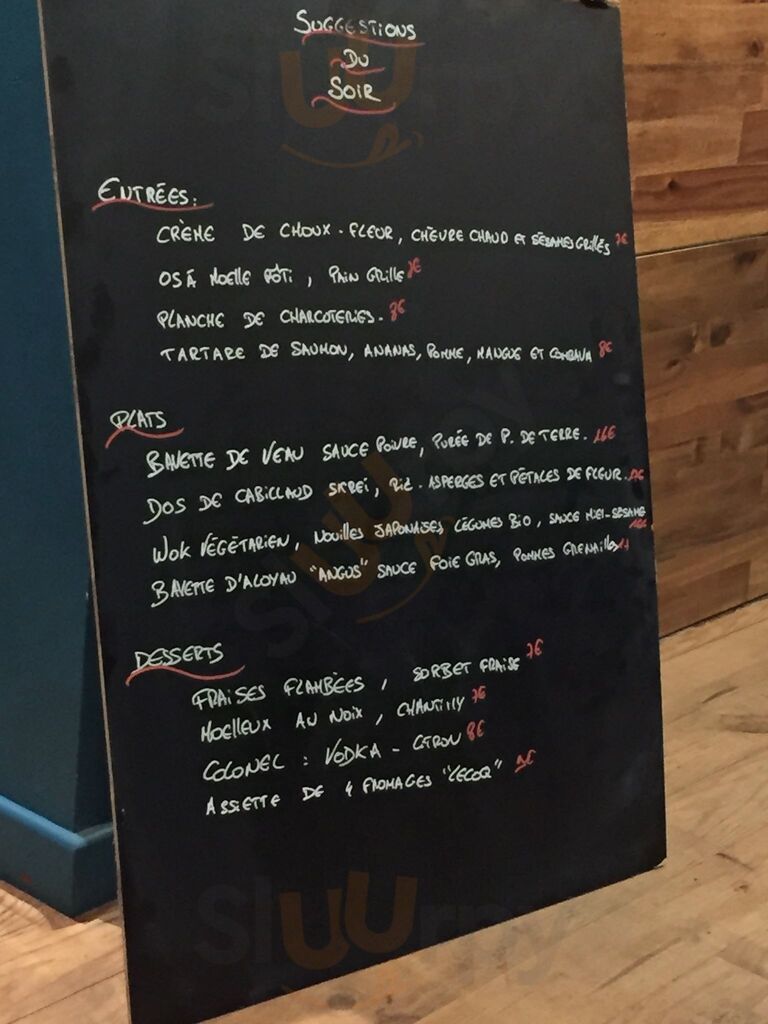 SUGGESTIONS
DU
SOIR
ENTRÉES:
CRÈME DE CHOUX-FLEUR, CHÈVRE CHAUD ET SÉSAMES GRILLÉS 7€
OS À MOELLE RÔTI, PAIN GRILLÉ
PLANCHE DE CHARCOTERIES. 8€
TARTARE DE SAUMON, ANANAS, POMME, MANGUE ET COMBAVA 8€
PLATS
BAVETTE DE VEAU SAUCE POIVRE, PURÉE DE P. DE TERRE. 16€
DOS DE CABILLAUD SKREÏ, RIZ. ASPERGES ET PÉTALES DE FLEUR.
WOK VÉGÉTARIEN, NOUILLES JAPONAISES LÉGUMES BIO, SAUCE MIEL-SÉSAME
BAVETTE D'ALOYAU "ANGUS" SAUCE FOIE GRAS, POMMES GRENAILLES
DESSERTS
FRAISES FLAMBÉES, SORBET FRAISE 7€
MOELLEUX AU NOIX, CHANTILLY 7€
COLONEL : VODKA - CITRON 8€
ASSIETTE DE 4 FROMAGES "LECOQ"
sluurpy
sluurpy